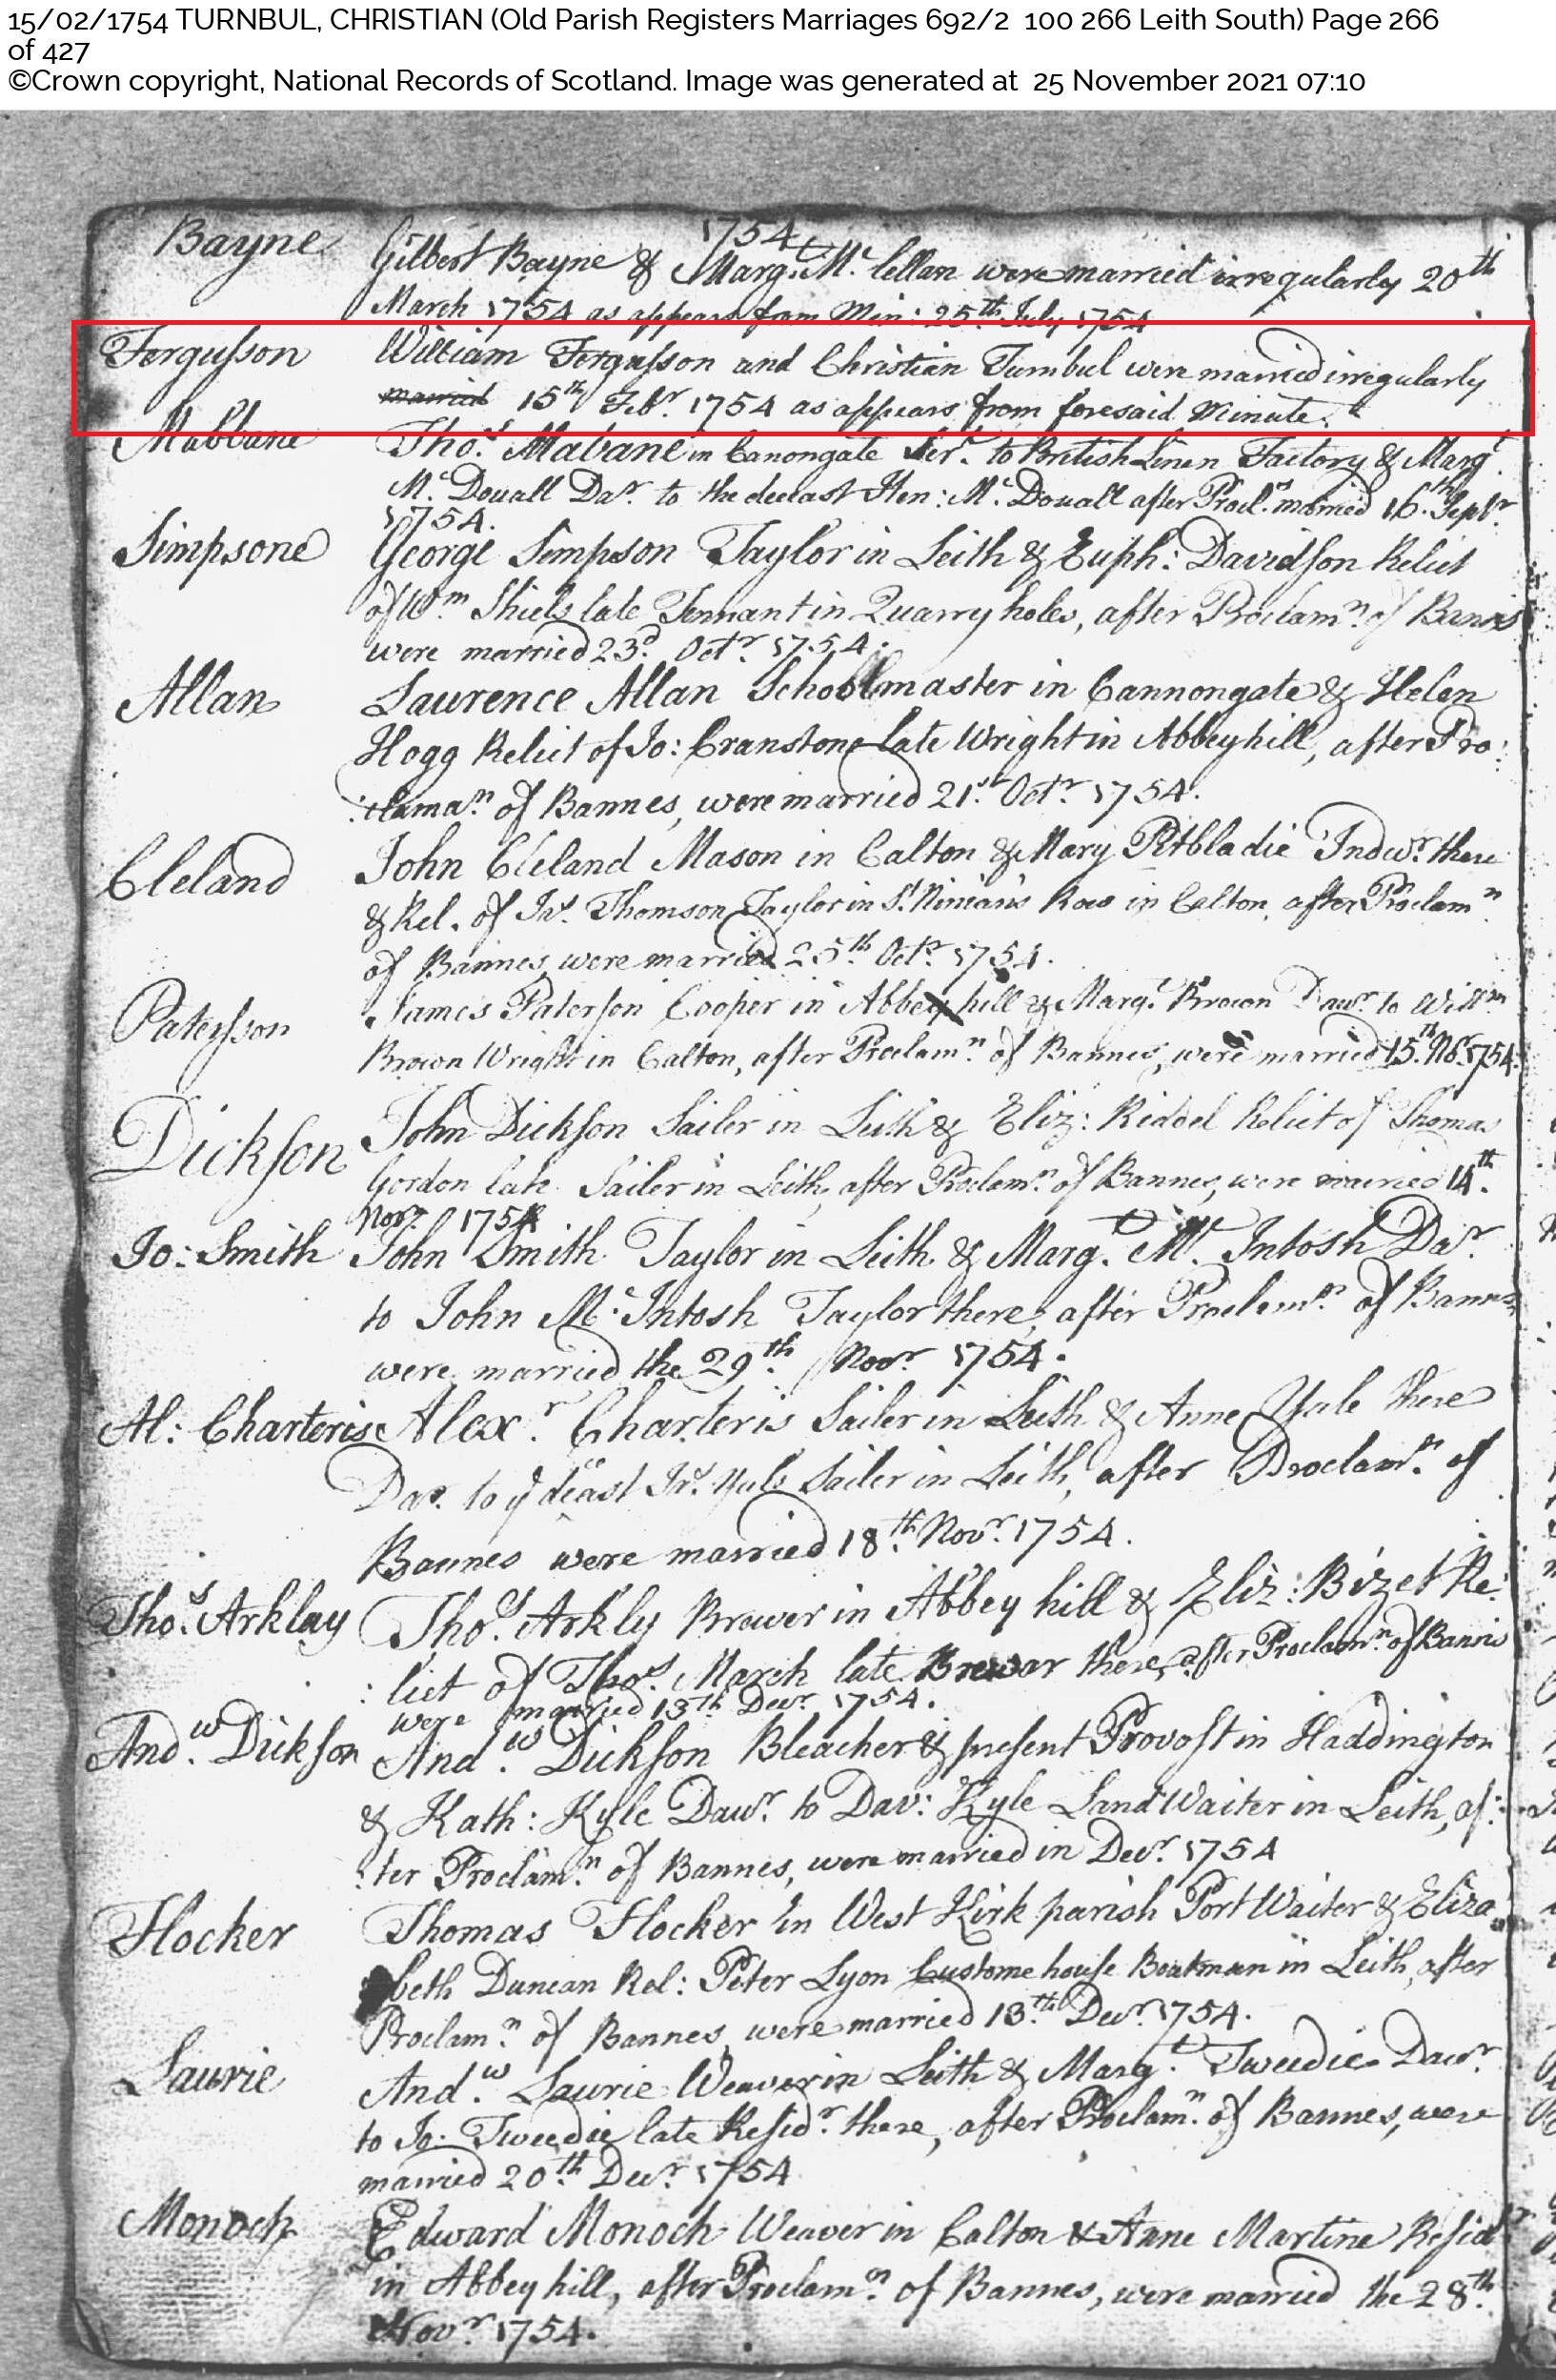 15/02/1754 TURNBUL, CHRISTIAN (Old Parish Registers Marriages 692/2 100 266 Leith South) Page 266
of 427
©Crown copyright, National Records of Scotland. Image was generated at 25 November 2021 07:10
1754
Bayne Gilbert Bayne & Margt. Mc. lellan were married irregularly 20th
March 1754 as appears from Min: 25th July 1754
Fergusson William Fergusson and Christian Turnbul were married irregularly
married 15th Febr. 1754 as appears from foresaid Minute.
Mabbane Thos. Mabane in Canongate Ser. to British Linen Factory & Margt.
Mc. Douall Dar. to the deceast Hen: Mc. Douall after Procln. married 16th. Septr.
1754.
Simpsone George Simpson Taylor in Leith & Euph: Davidson Relict
of Wm. Shiels late Tennant in Quarryholes, after Proclamn. of Bannes
were married 23d. Octr. 1754.
Allan Laurence Allan Schoolmaster in Cannongate & Helen
Hogg Relict of Jo: Cranstone late Wright in Abbeyhill, after Pro:
:claman. of Bannes, were married 21st. Octr. 1754.
Cleland John Cleland Mason in Calton & Mary Pitbladie Indwr. there
& Rel. of Jas. Thomson Taylor in St. Ninian's Row in Calton, after Proclamn.
of Bannes were married 25th. Octr. 1754.
Patersson James Paterson Cooper in Abbey hill & Margt. Brown Dawr. to Willm.
Brown Wright in Calton, after Proclamn. of Bannes, were married 15th. Nor. 1754.
Dickson John Dickson Sailer in Leith & Eliz: Riddel Relict of Thomas
Gordon late Sailer in Leith, after Proclamn. of Bannes, were married 14th.
Novr. 1754
Jo: Smith John Smith Taylor in Leith & Margt. Mc. Intosh Dar.
to John Mc. Intosh Taylor there, after Proclamn. of Bannes
were married the 29th. Novr. 1754.
Al: Charteris Alexr. Charteris Sailer in Leith & Anne Yule there
Dar. to ye deceast Jas. Yule Sailer in Leith, after Proclamn. of
Bannes were married 18th. Novr. 1754.
Thos. Arklay Thos. Arkly Brewer in Abbey hill & Eliz: Bizet Re:
:lict of Thos. March late Brewar there, after Proclamn. of Bannes
were married 13th. Decr. 1754.
Andw. Dickson Andw. Dickson Bleacher & present Provost in Haddington
& Kath: Kyle Dawr. to Dav: Kyle Land Waiter in Leith, af:
:ter Proclamn. of Bannes, were married in Decr. 1754
Flocker Thomas Flocker in West Kirk parish Port Waiter & Eliza
beth Duncan Rel: Peter Lyon Custome house Boatman in Leith, after
Proclamn. of Bannes, were married 13th. Decr. 1754.
Laurie Andw. Laurie Weaver in Leith & Margt. Tweedie Dawr.
to Jo: Tweedie late Residr. there, after Proclamn. of Bannes, were
married 20th. Decr. 1754
Monoch Edward Monoch Weaver in Calton & Anne Martine Residr.
in Abbey hill, after Proclamn. of Bannes, were married the 28th.
Novr. 1754.